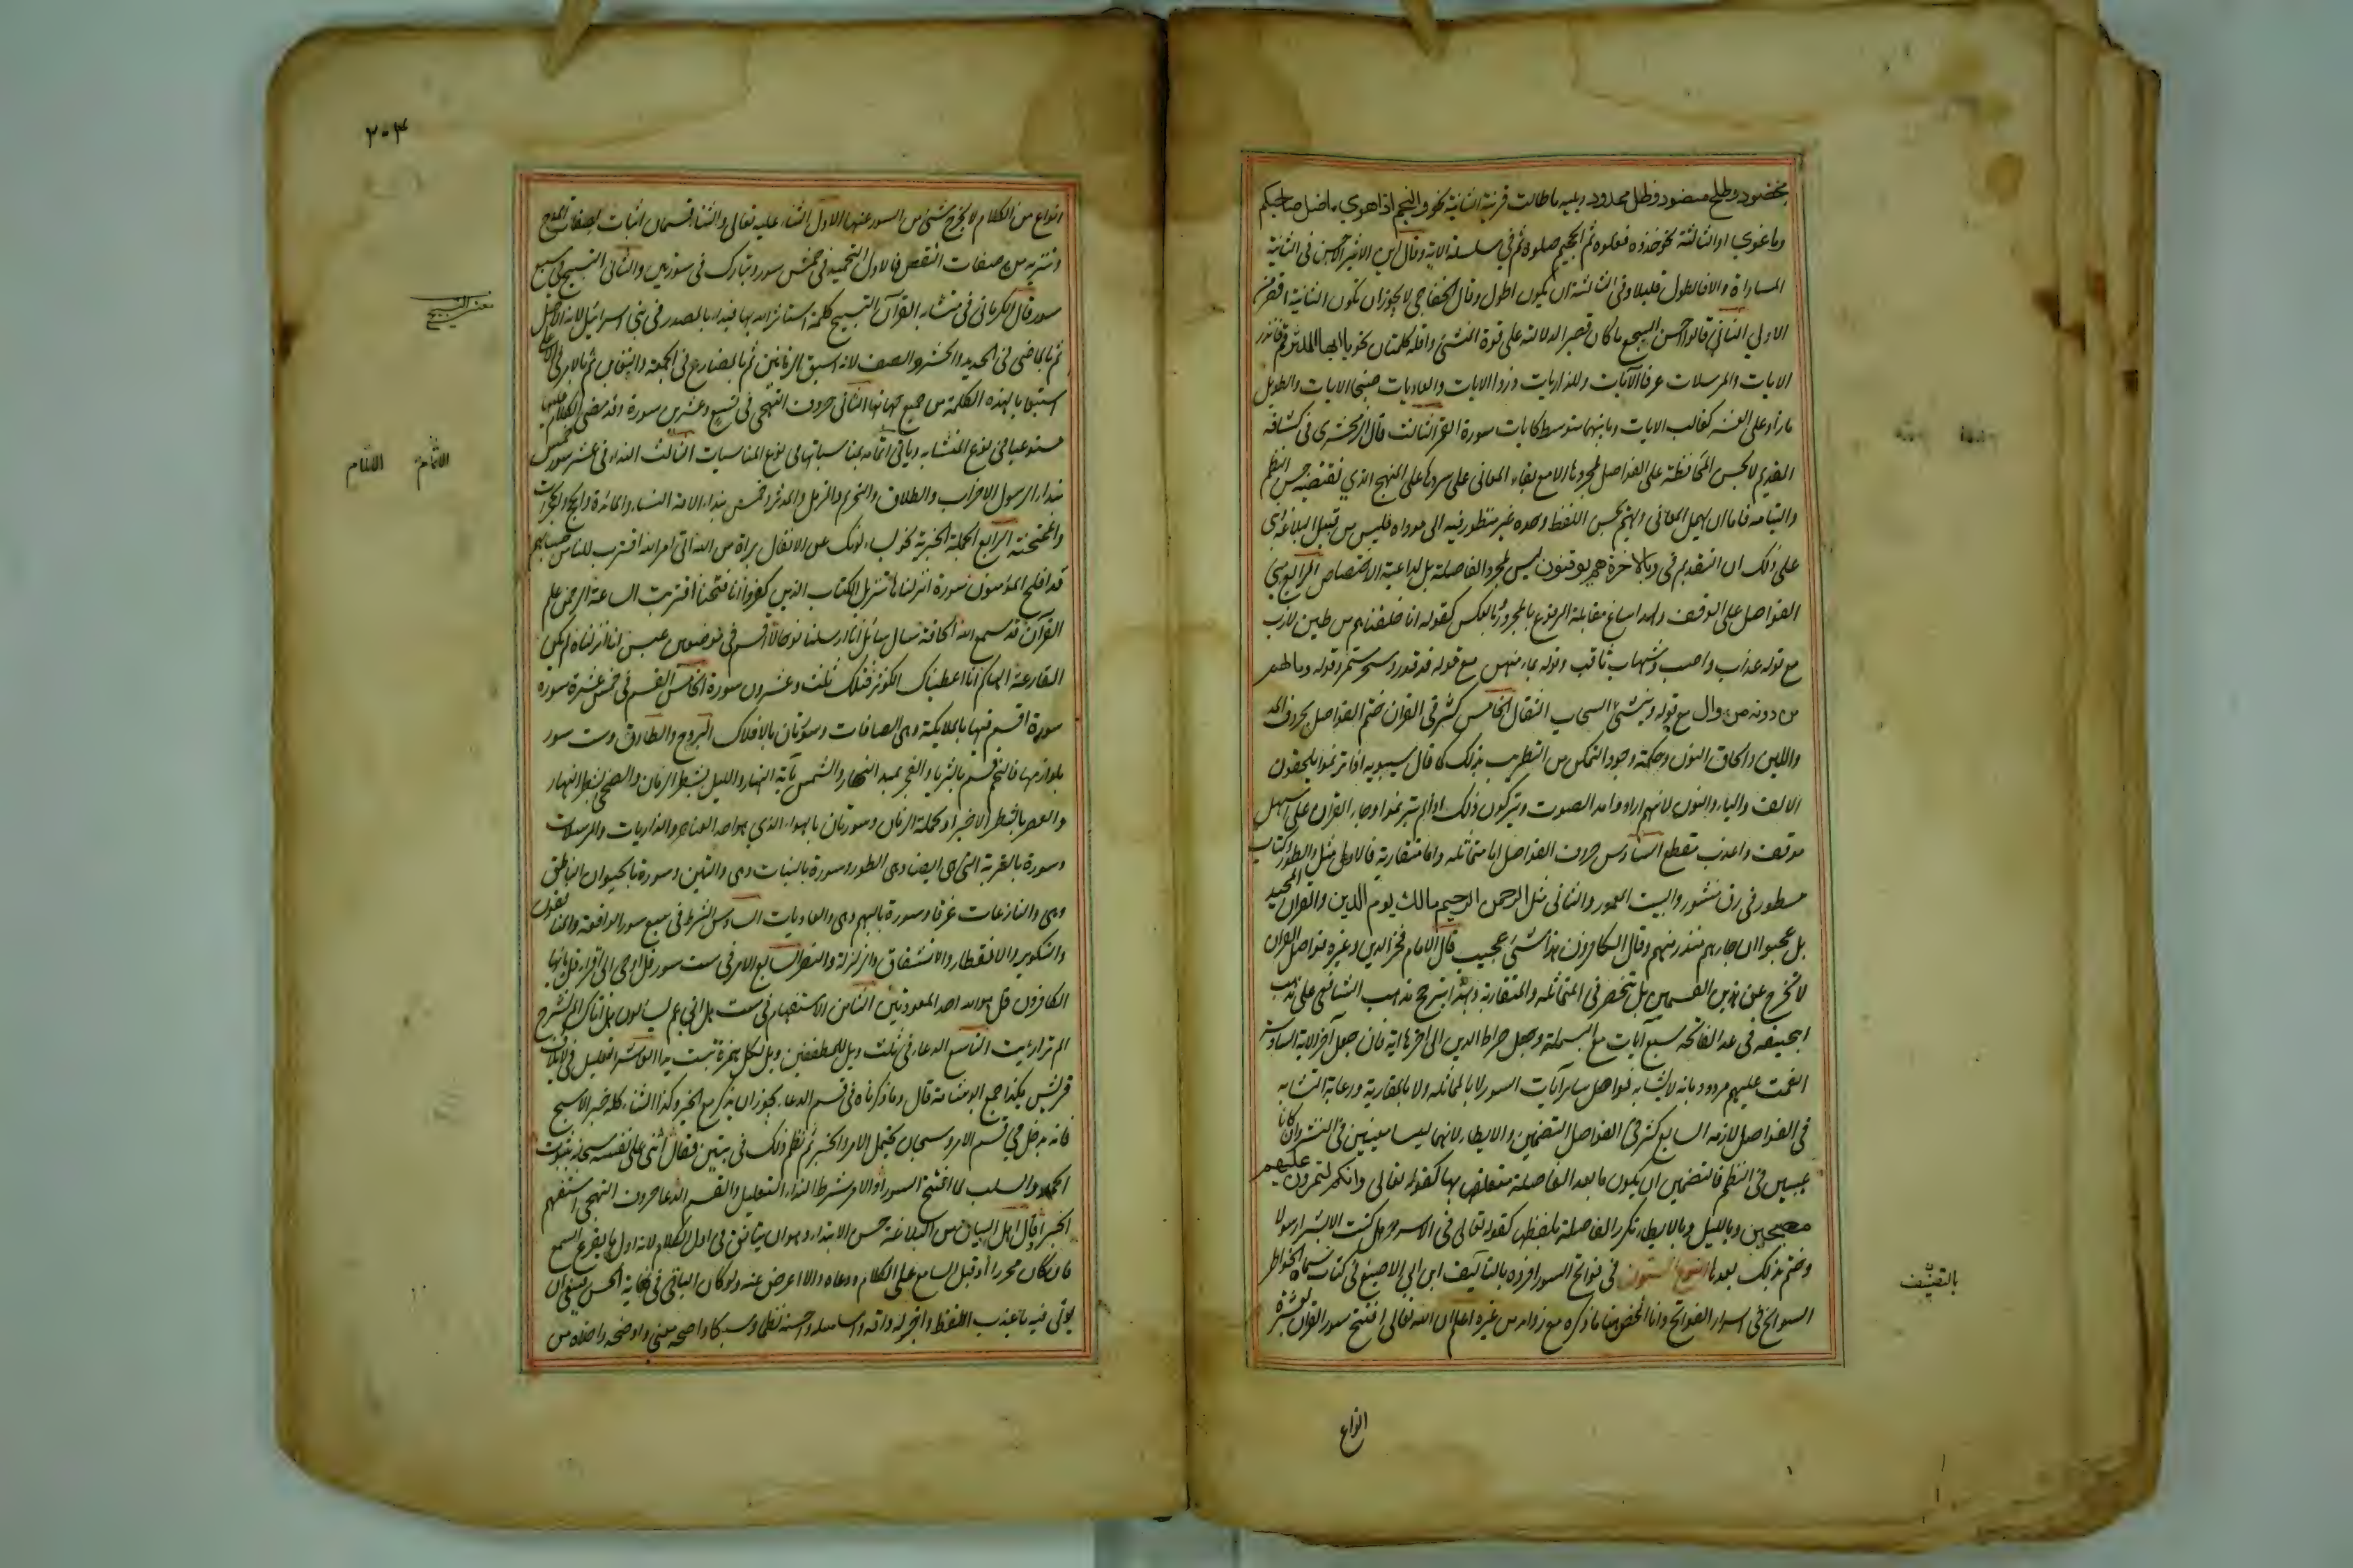 مخضود وطلح منضود وظل ممدود ويليه ما طالت قرينته الثانية نحو والنجم اذا هوي ماضل صاحبكم
وما غوي او الثالثة نحو خذوه فغلوه ثم الجحيم صلوه ثم في سلسلة الاية وقال ابن الاثير الاحسن في الثانية
المساواة والا فاطول قليلا وفي الثالثة ان يكون اطول وقال الخفاجي لا يجوز ان تكون الثانية اقصر من
الاولي الثاني قالوا احسن السجع ما كان قصيرا لدلالته على قوة المنشئ واقله كلمتان نحو يا ايها المدثر قم فانذر
الايات والمرسلات عرفا الآيات والذاريات ذروا الايات والعاديات ضبحا الايات والطويل
ما زاد على العشر كغالب الايات وما بينهما متوسط كايات سورة القمر الثالث قال الزمخشري في كشافه
القديم لا تحسن المحافظة على الفواصل لمجردها الا مع بقاء المعاني على سردها على المنهج الذي تقتضيه حسن النظم
والتيامه فاما ان يهمل المعاني ويهتم بحسن اللفظ وحده غير منظور فيه الى موداه فليس من قبيل البلاغة وبني
على ذلك ان التقديم في وبالاخرة هم يوقنون ليس لمجرد الفاصلة بل لداعية الاختصاص الرابع مبني
الفواصل على الوقف ولهذا ساغ مقابلة المرفوع بالمجرور وبالعكس كقوله انا خلقناهم من طين لازب
مع قوله عذاب واصب وشهاب ثاقب وقوله بماء منهمر مع قوله قد قدر وسحر مستمر وقوله وما لهم
من دونه من وال مع قوله وينشئ السحاب الثقال الخامس كثر في القران ختم الفواصل بحروف المد
واللين والحاق النون وحكمته وجود التمكن من التطريب بذلك كما قال سيبويه اذا ترنموا يلحقون
الالف والياء والنون لانهم ارادوا مد الصوت ويتركون ذلك اذا لم يترنموا وجاء القران على اسهل
موقف واعذب مقطع السادس حروف الفواصل اما متماثلة واما متقاربة فالاولى مثل والطور وكتاب
مسطور في رق منشور والبيت المعمور والثاني مثل الرحمن الرحيم مالك يوم الدين والقران المجيد
بل عجبوا ان جاءهم منذر منهم وقال الكافرون هذا شئ عجيب قال الامام فخر الدين وغيره فواصل القران
لا تخرج عن هذين القسمين بل تنحصر في المتماثلة والمتقاربة وبهذا يترجح مذهب الشافعي على مذهب
ابي حنيفه في عد الفاتحة سبع آيات مع البسملة وجعل صراط الدين الى اخرها اية فان جعل آخر الاية السادسة
انعمت عليهم مردود بانه لا يشابه فواصل ساير آيات السور لا بالمماثلة ولا بالمقاربة ورعاية التشابه
في الفواصل لازمة السابع كثر في الفواصل التضمين والايطاء لانهما ليسا معيبين في النثر وان كانا
عيبين في النظم فالتضمين ان يكون ما بعد الفاصلة متعلقا بها كقوله تعالى وانكم لتمرون عليهم
مصبحين وبالليل وبالايطاء تكرر الفاصلة بلفظها كقوله تعالى في الاسراء هل كنت الا بشرا رسولا
وختم بذلك بعدها النوع الستون في فواتح السور افرده بالتأليف ابن ابي الاصبع في كتاب سماه الخواطر
السوانح في اسرار الفواتح وانا الخص هنا ما ذكره مع زوايد من غيره اعلم ان الله تعالى افتتح سور القران بعشرة
انواع
انواع من الكلام لا يخرج شئ من السور عنها الاول الثناء عليه تعالى والثناء قسمان اثبات لصفات المدح
وتنزيه من صفات النقص فالاول التحميد في خمس سور وتبارك في سورتين والثاني التسبيح في سبع
سور قال الكرماني في متشابه القرآن التسبيح كلمة استاثر الله بها فبدا بالمصدر في بني اسرائيل لانه الاصل
ثم بالماضي في الحديد والحشر والصف لانه اسبق الزمانين ثم بالمضارع في الجمعة والتغابن ثم بالامر في الاعلى
استيعابا لهذه الكلمة من جميع جهاتها الثاني حروف التهجي في تسع وعشرين سورة وقد مضى الكلام عليها
مستوعبا في نوع المتشابه وياتي التامه بمناسباتها في نوع المناسبات الثالث النداء في عشر سور خمس
بنداء الرسول الاحزاب والطلاق والتحريم والمزمل والمدثر وخمس بنداء الامة النساء والمائدة والحج والحجرات
والممتحنة الرابع الجملة الخبرية نحو يسئلونك عن الانفال براة من الله اتى امر الله اقترب للناس حسابهم
قد افلح المؤمنون سورة انزلناها تنزيل الكتاب الذين كفروا انا فتحنا اقتربت الساعة الرحمن علم
القرآن قد سمع الله الحاقة سال سائل انا ارسلنا نوحا لا اقسم في موضعين عبس انا انزلناه لم يكن
القارعة الهاكم انا اعطيناك الكوثر فتلك ثلث وعشرون سورة الخامس القسم في خمس عشرة سورة
سورة اقسم فيها بالملايكة وهى الصافات وسورتان بالافلاك البروج والطارق وست سور
بلوازمها فالنجم قسم بالثريا والفجر بمبدا النهار والشمس بآية النهار والليل بشطر الزمان والضحى بشطر النهار
والعصر بالشطر الاخير او بجملة الزمان وسورتان بالهواء الذي هو احد العناصر والذاريات والمرسلات
وسورة بالتربة التي هي ايضا وهى الطور وسورة بالنبات وهى والتين وسورة بالحيوان الناطق
وهى والنازعات غرقا وسورة بالبهيم وهى والعاديات السادس الشرط في سبع سور الواقعة والمنافقون
والتكوير والانفطار والانشقاق والزلزلة والنصر السابع الامر في ست سور قل اوحى الى اقراء قل يا ايها
الكافرون قل هو الله احد المعوذتين الثامن الاستفهام في ست هل اتى عم يتساءلون هل اتاك الم نشرح
الم تر ارايت التاسع الدعاء في ثلث ويل للمطففين ويل لكل همزة تبت يدا العاشر التعليل في لايلاف
قريش هكذا جمع ابو شامة قال وما ذكرناه في قسم الدعاء يجوز ان يذكر مع الخبر وكذا الثناء كله خبر الا سبح
فانه يدخل في قسم الامر وسبحان يحتمل الامر والخبر ثم نظم ذلك في بيتين فقال اثنى على نفسه سبحانه بثبوت
الحمد والسلب لما افتتح السور أو الامر شرط النداء التعليل والقسم الدعا حروف التهجي استفهم
الخبرا قال اهل البيان من البلاغة حسن الابتداء وهو ان يتأنق في اول الكلام لانه اول ما يقرع السمع
فان كان محررا أقبل السامع على الكلام ووعاه والا اعرض عنه ولو كان الباقي في نهاية الحسن فينبغي ان
يوتى فيه باعذب اللفظ واجزله وارقه واسلسه واحسنه نظما وسبكا واصحه معنى واوضحه واخلاه من
بالتصنيف